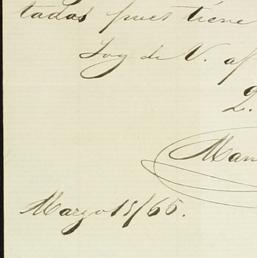 tadas pues tiene
Soy de V. af
Man
Marzo 15/65.